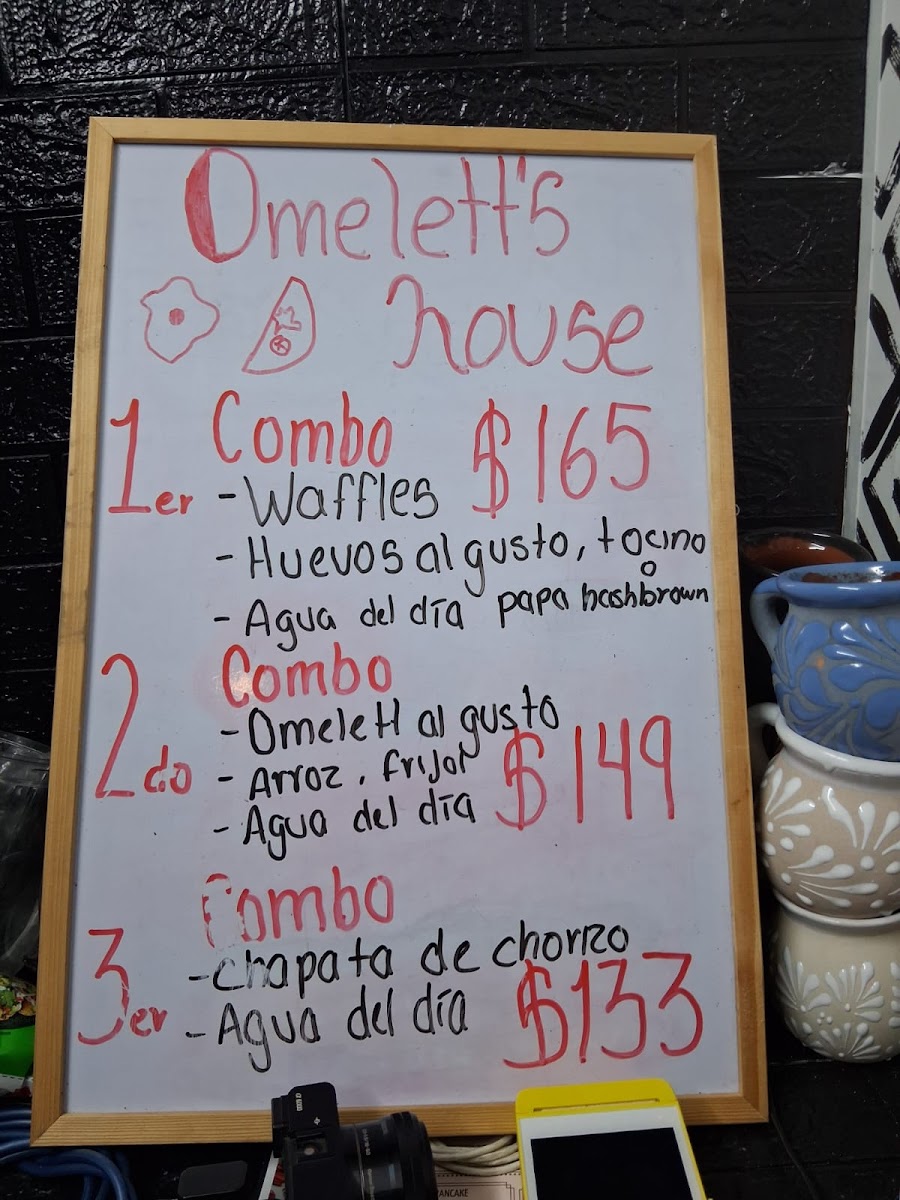 Omelett's
house
1er Combo $165
- Waffles
- Huevos al gusto, tocino
o
- Agua del día papa hashbrown
2do Combo
- Omelett al gusto
- Arroz, frijol $149
- Agua del día
3er Combo
- Chapata de chorizo
- Agua del día $133
ANCAKE